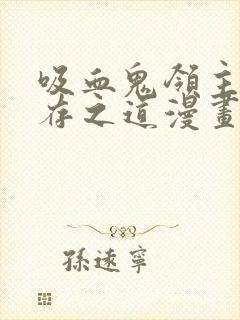 吸血鬼領主
存之道漫畫
孫遠寧